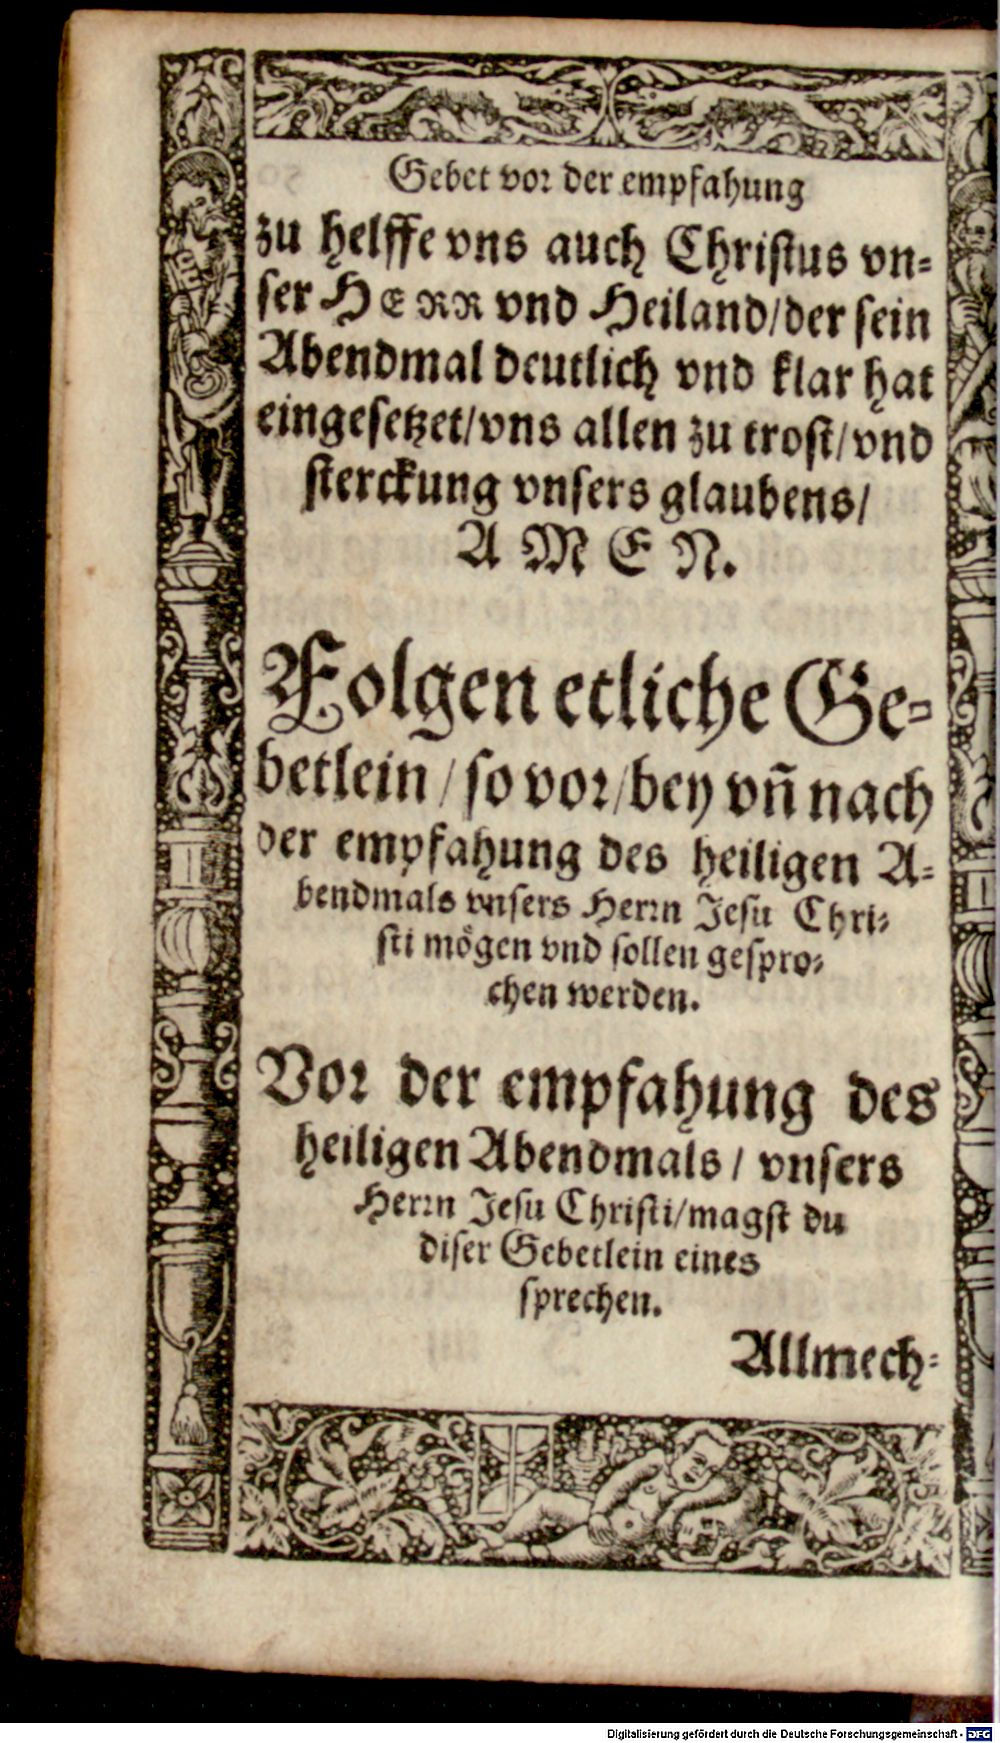 Gebet vor der empfahung
zu helffe vns auch Christus vn=
ser HERR vnd Heiland/der sein
Abendmal deutlich vnd klar hat
eingesetzet/vns allen zu trost/vnd
sterckung vnsers glaubens/
AMEN.
Folgen etliche Ge=
betlein/so vor/bey vñ nach
der empfahung des heiligen A=
bendmals vnsers Herrn Jesu Chri=
sti mögen vnd sollen gespro=
chen werden.
Vor der empfahung des
heiligen Abendmals/vnsers
Herrn Jesu Christi/magst du
diser Gebetlein eines
sprechen.
Allmech=
Digitalisierung gefördert durch die Deutsche Forschungsgemeinschaft - DFG